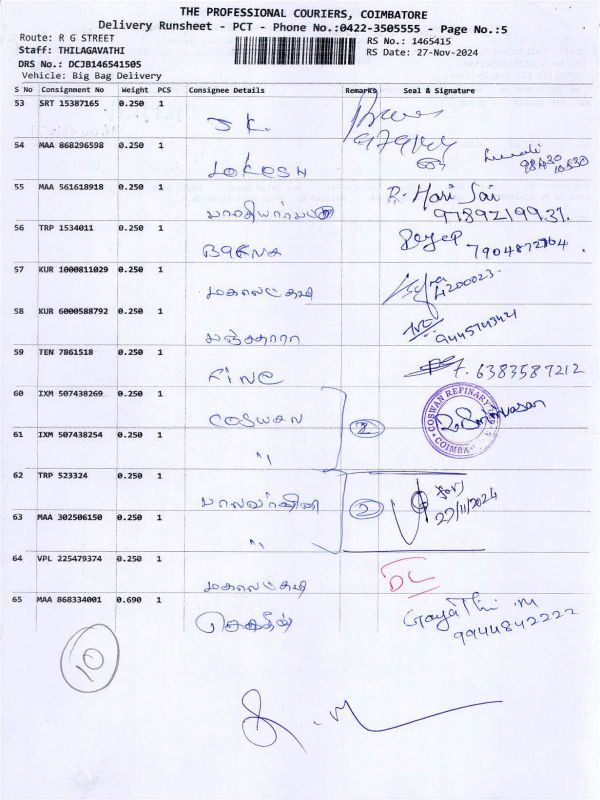 THE PROFESSIONAL COURIERS, COIMBATORE
Delivery Runsheet - PCT - Phone No.:0422-3505555 - Page No.:5
Route: R G STREET RS No.: 1465415
Staff: THILAGAVATHI RS Date: 27-Nov-2024
DRS No.: DCJB146541505
Vehicle: Big Bag Delivery
S No Consignment No Weight PCS Consignee Details Remarks Seal & Signature
53 SRT 15387165 0.250 1 S K.
54 MAA 868296598 0.250 1 LOKESH
55 MAA 561618918 0.250 1 R. Hari Sai 9789219931.
56 TRP 1534011 0.250 1 7904872764
57 KUR 1000811029 0.250 1 மகாலட்சுமி
58 KUR 6000588792 0.250 1
59 TEN 7861518 0.250 1 FINE 6383587212
60 IXM 507438269 0.250 1 COSWAN 2 COSWAN REFINARY COIMBA
61 IXM 507438254 0.250 1 "
62 TRP 523324 0.250 1 2 27/11/2024
63 MAA 302506150 0.250 1 "
64 VPL 225479374 0.250 1 மகாலட்சுமி DL
65 MAA 868334001 0.690 1 Gayathi .M
9944842222
10